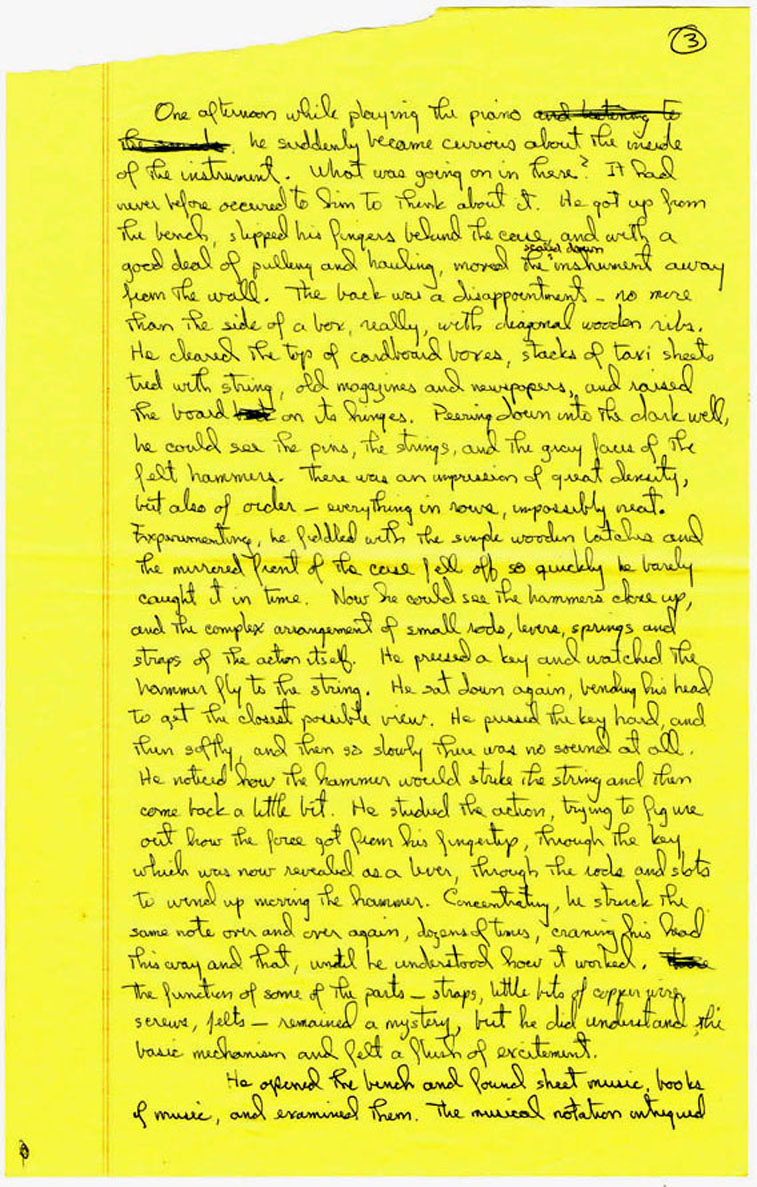 3
One afternoon while playing the piano and listening to
the sounds, he suddenly became curious about the inside
of the instrument. What was going on in there? It had
never before occured to him to think about it. He got up from
the bench, slipped his fingers behind the case, and with a
scaled down
good deal of pulling and hauling, moved the instrument away
from the wall. The back was a disappointment – no more
than the side of a box, really, with diagonal wooden ribs.
He cleared the top of cardboard boxes, stacks of taxi sheets
tied with string, old magazines and newspapers, and raised
the board on its hinges. Peering down into the dark well,
he could see the pins, the strings, and the gray faces of the
felt hammers. There was an impression of great density,
but also of order – everything in rows, impossibly neat.
Experimenting, he fiddled with the simple wooden latches and
the mirrored front of the case fell off so quickly he barely
caught it in time. Now he could see the hammers close up,
and the complex arrangement of small rods, levers, springs and
straps of the action itself. He pressed a key and watched the
hammer fly to the string. He sat down again, bending his head
to get the closest possible view. He pressed the key hard, and
then softly, and then so slowly there was no sound at all.
He noticed how the hammer would strike the string and then
come back a little bit. He studied the action, trying to figure
out how the force got from his fingertip, through the key
which was now revealed as a lever, through the rods and slots
to wind up moving the hammer. Concentrating, he struck the
same note over and over again, dozens of times, craning his head
this way and that, until he understood how it worked.
The function of some of the parts – straps, little bits of copper wire,
screws, felts – remained a mystery, but he did understand the
basic mechanism and felt a flush of excitement.
He opened the bench and found sheet music, books
of music, and examined them. The musical notation intrigued